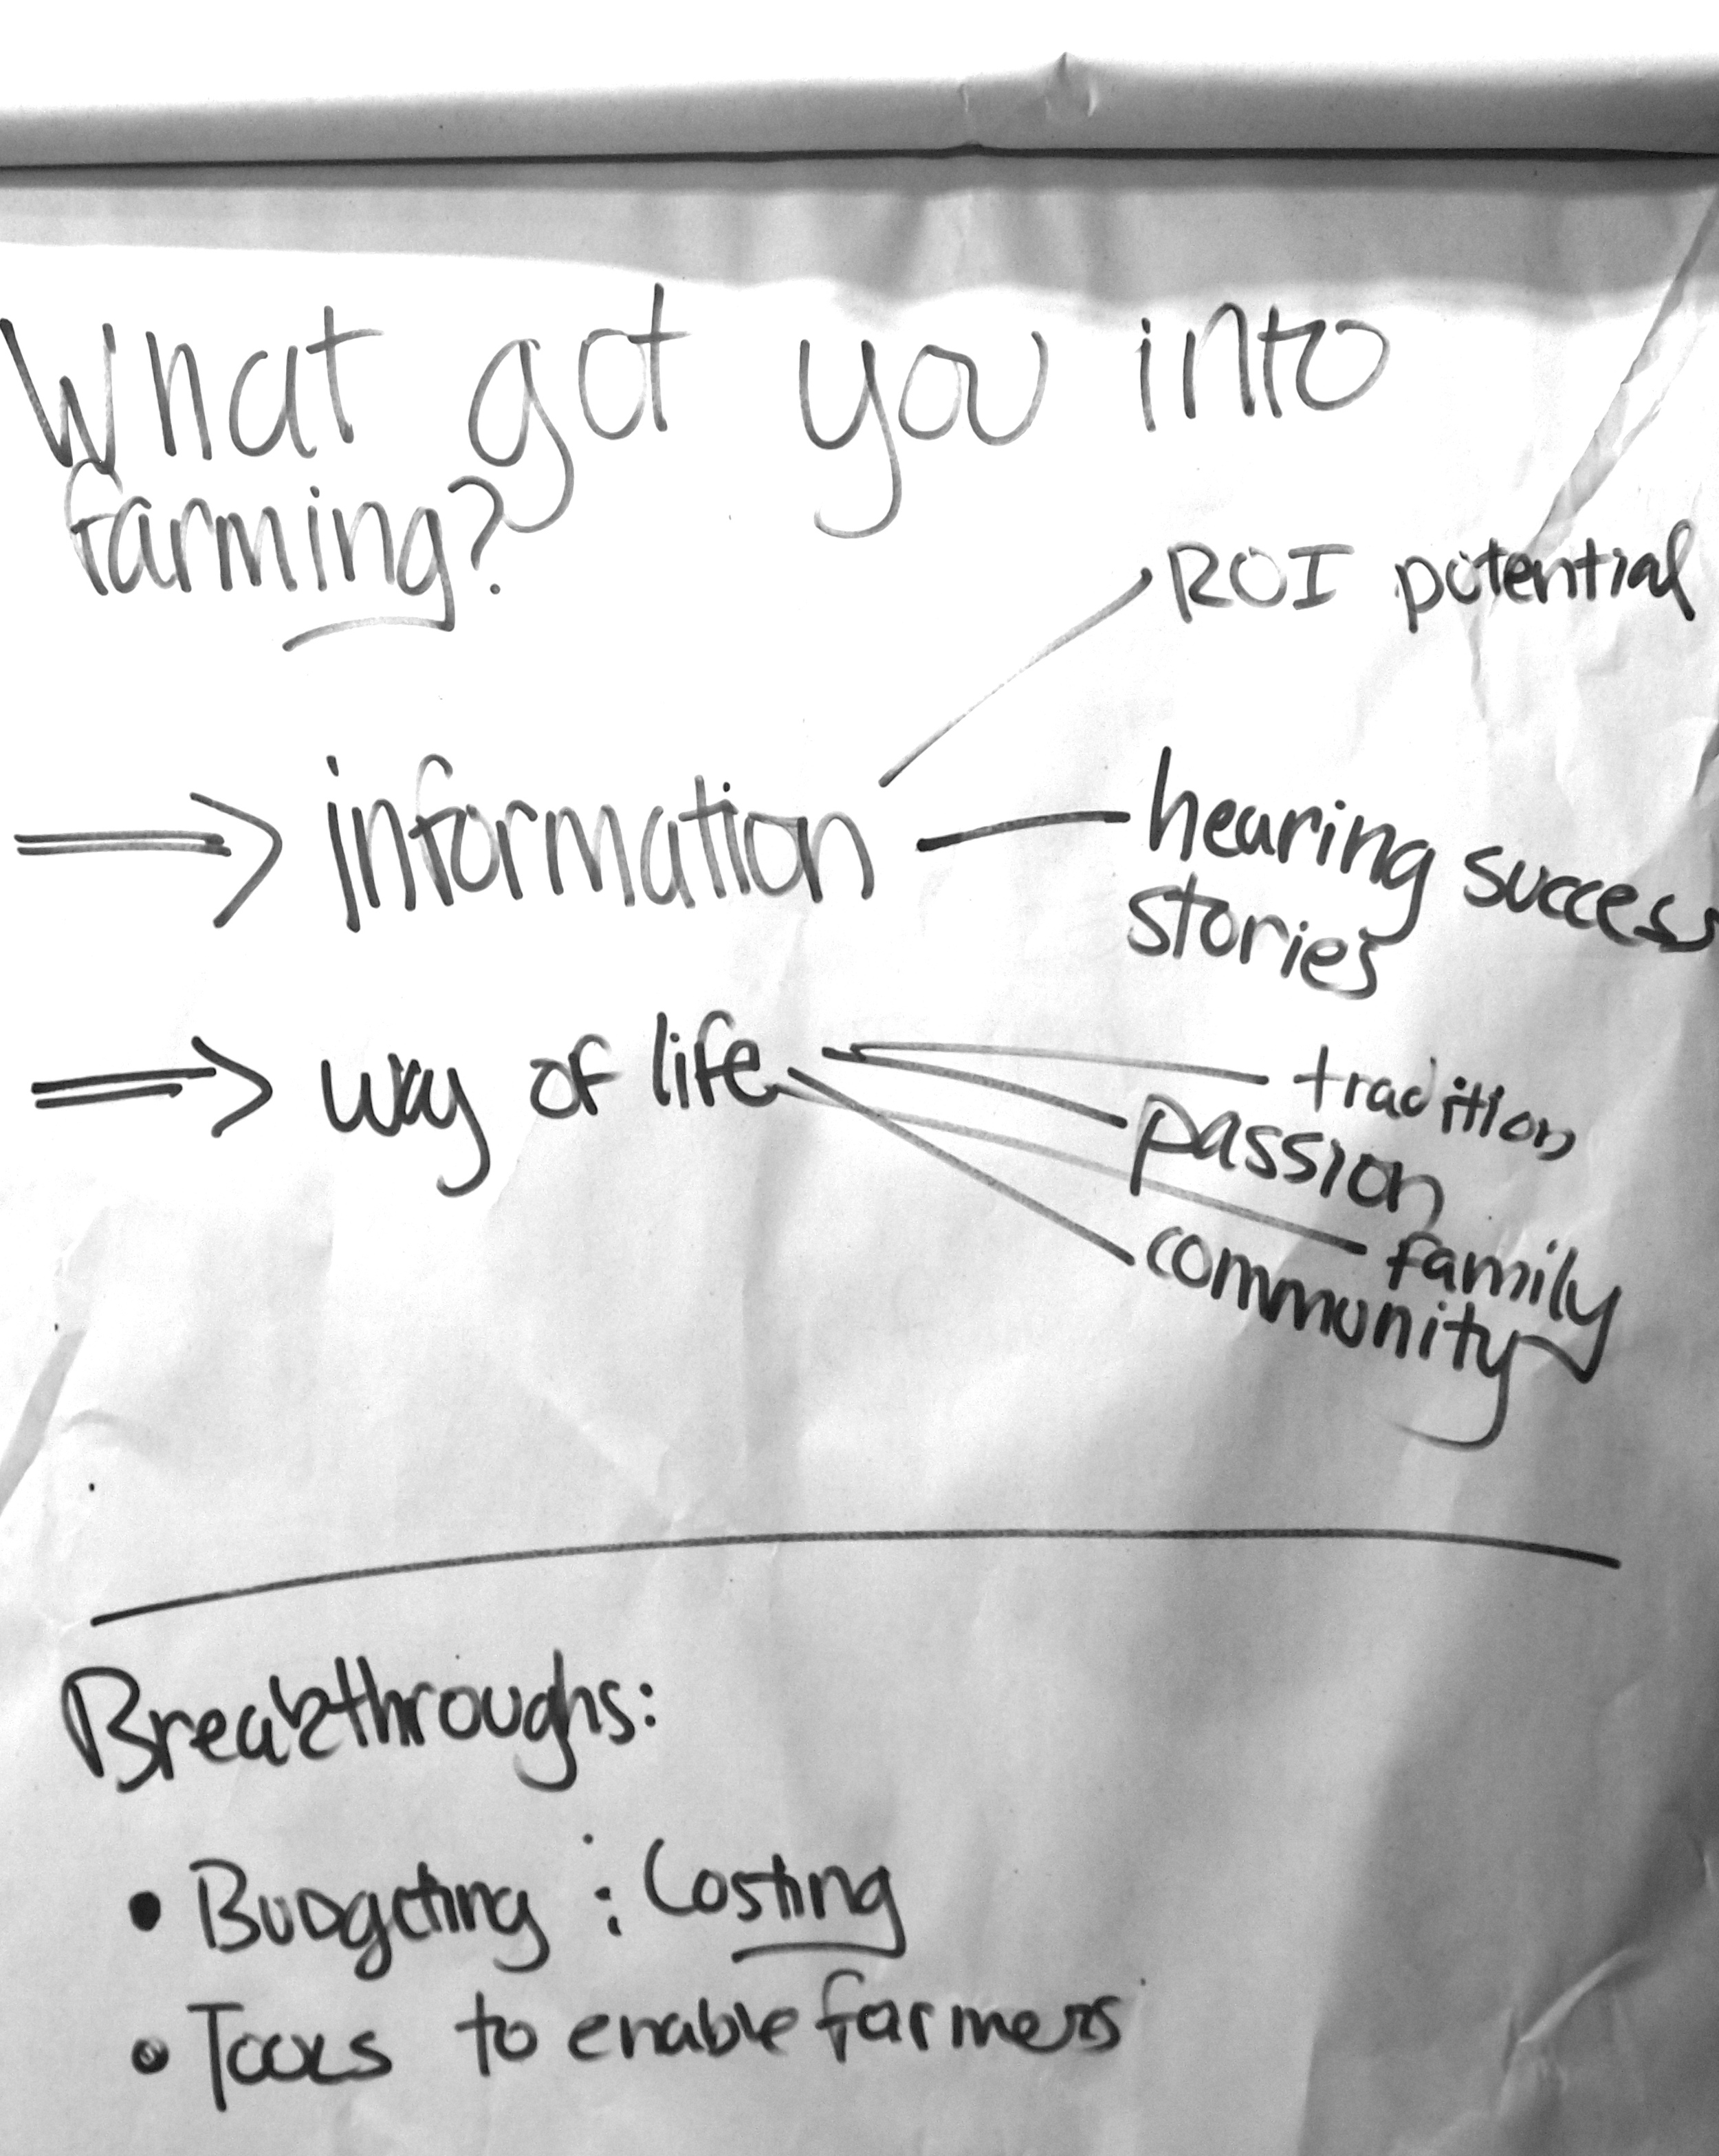 What got you into
farming?
ROI potential
⇒ information
hearing success
stories
⇒ way of life
tradition
passion
family
community
Breakthroughs:
• Budgeting : Costing
• Tools to enable farmers